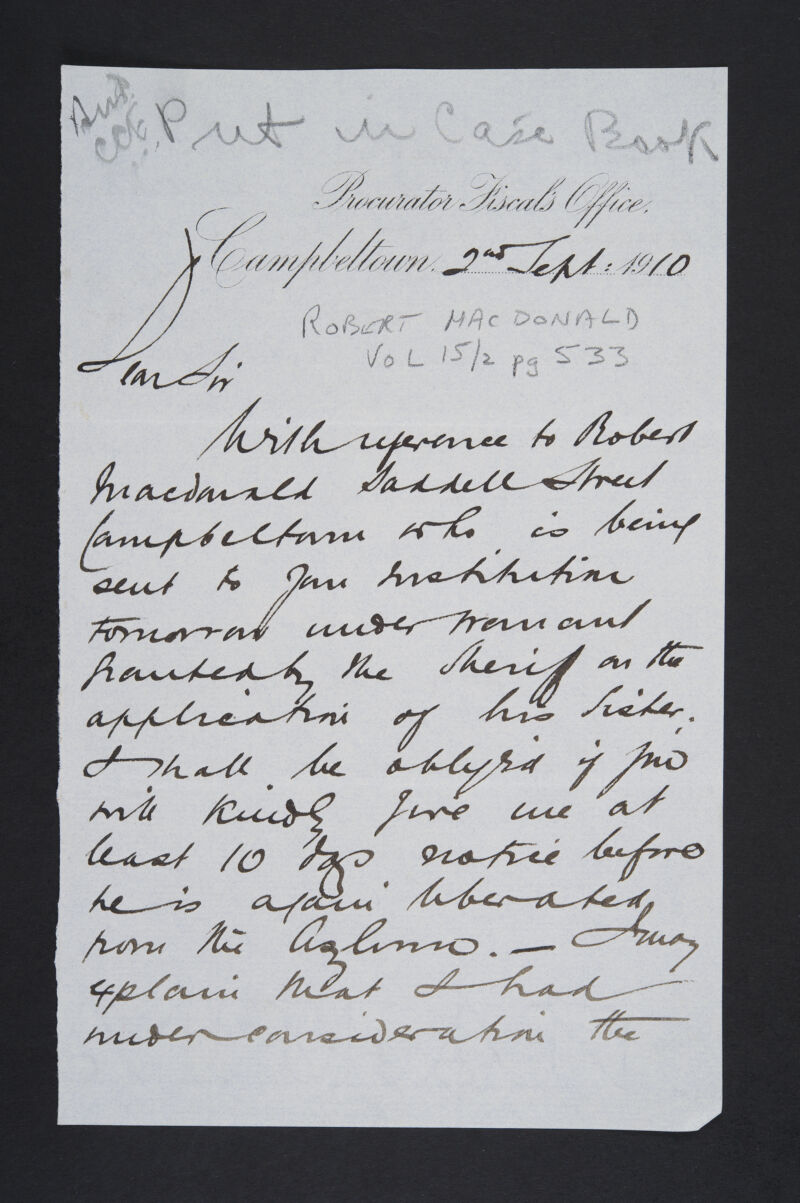 Put in Case Book
Procurator Fiscal's Office.
Campbeltown. 2nd Sept: 1910
ROBERT MACDONALD
VOL 15/2 pg 533
Dear Sir
With reference to Robert
Macdonald Saddell Street
Campbeltown who is being
sent to your Institution
tomorrow under warrant
granted by the Sheriff on the
application of his Sister.
I shall be obliged if you
will kindly give me at
least 10 dys notice before
he is again liberated
from the Asylum. — I may
explain that I had
under consideration the